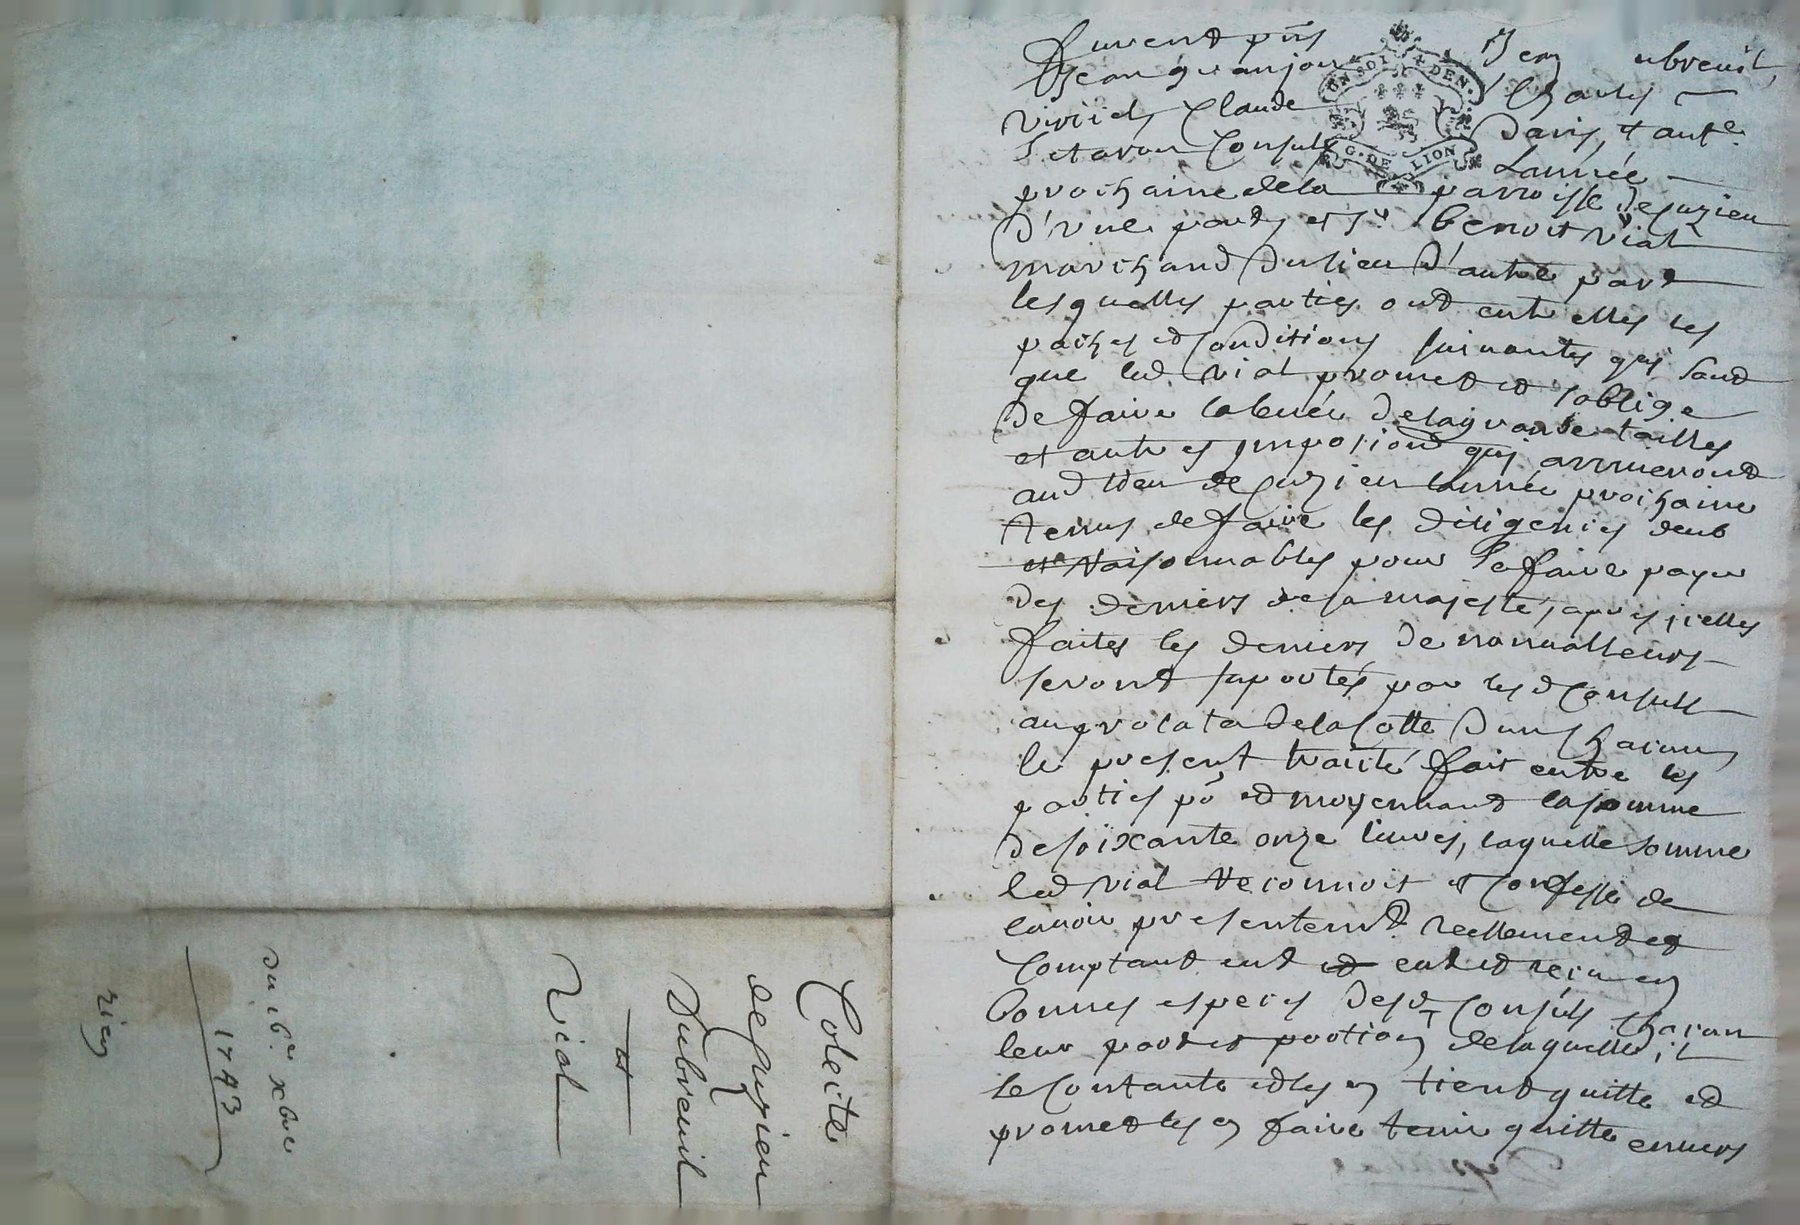 furent pñs
Jean granjon Jean ubreuil,
Claude Charles
Consuls Davis, & aut.e
prochaine de la Lannée
parroisse de Suzieu
d'une part, et Sr. benoit Vial
marchand du lieu d'autre part
lesquelles parties ont entre elles les
paches et Conditions suivantes qui sont
que led. vial promet et soblige
de faire la levée de la grande tailles
et autres impositions qui arriveront
aud. lieu de Suzieu lannée prochaine
tenus de faire les diligences deub
et raisonnables pour se faire payer
des deniers de sa majesté, apres icelles
faites les deniers de nonvalleurs
seront suportés par lesd. Consuls
au prorata de la Cotte d'un chacun
le present traité fait entre les
parties po. et moyennant la somme
de soixante onze livres, laquelle somme
led. vial reconnoit et Confesse de
lavoir presentemt. reellement et
Comptant eut et eu et reçu en
bonnes especes desd. Consuls chacun
leur part et portion de laquelle, il
se Contante et les en tient quitte et
promet les en faire tenir quitte envers
UN SOL 4 DEN.
G. DE LION
Coleite
de Suzieu
Dubreuil
et
Vial
du 16e xbre
1743
rien